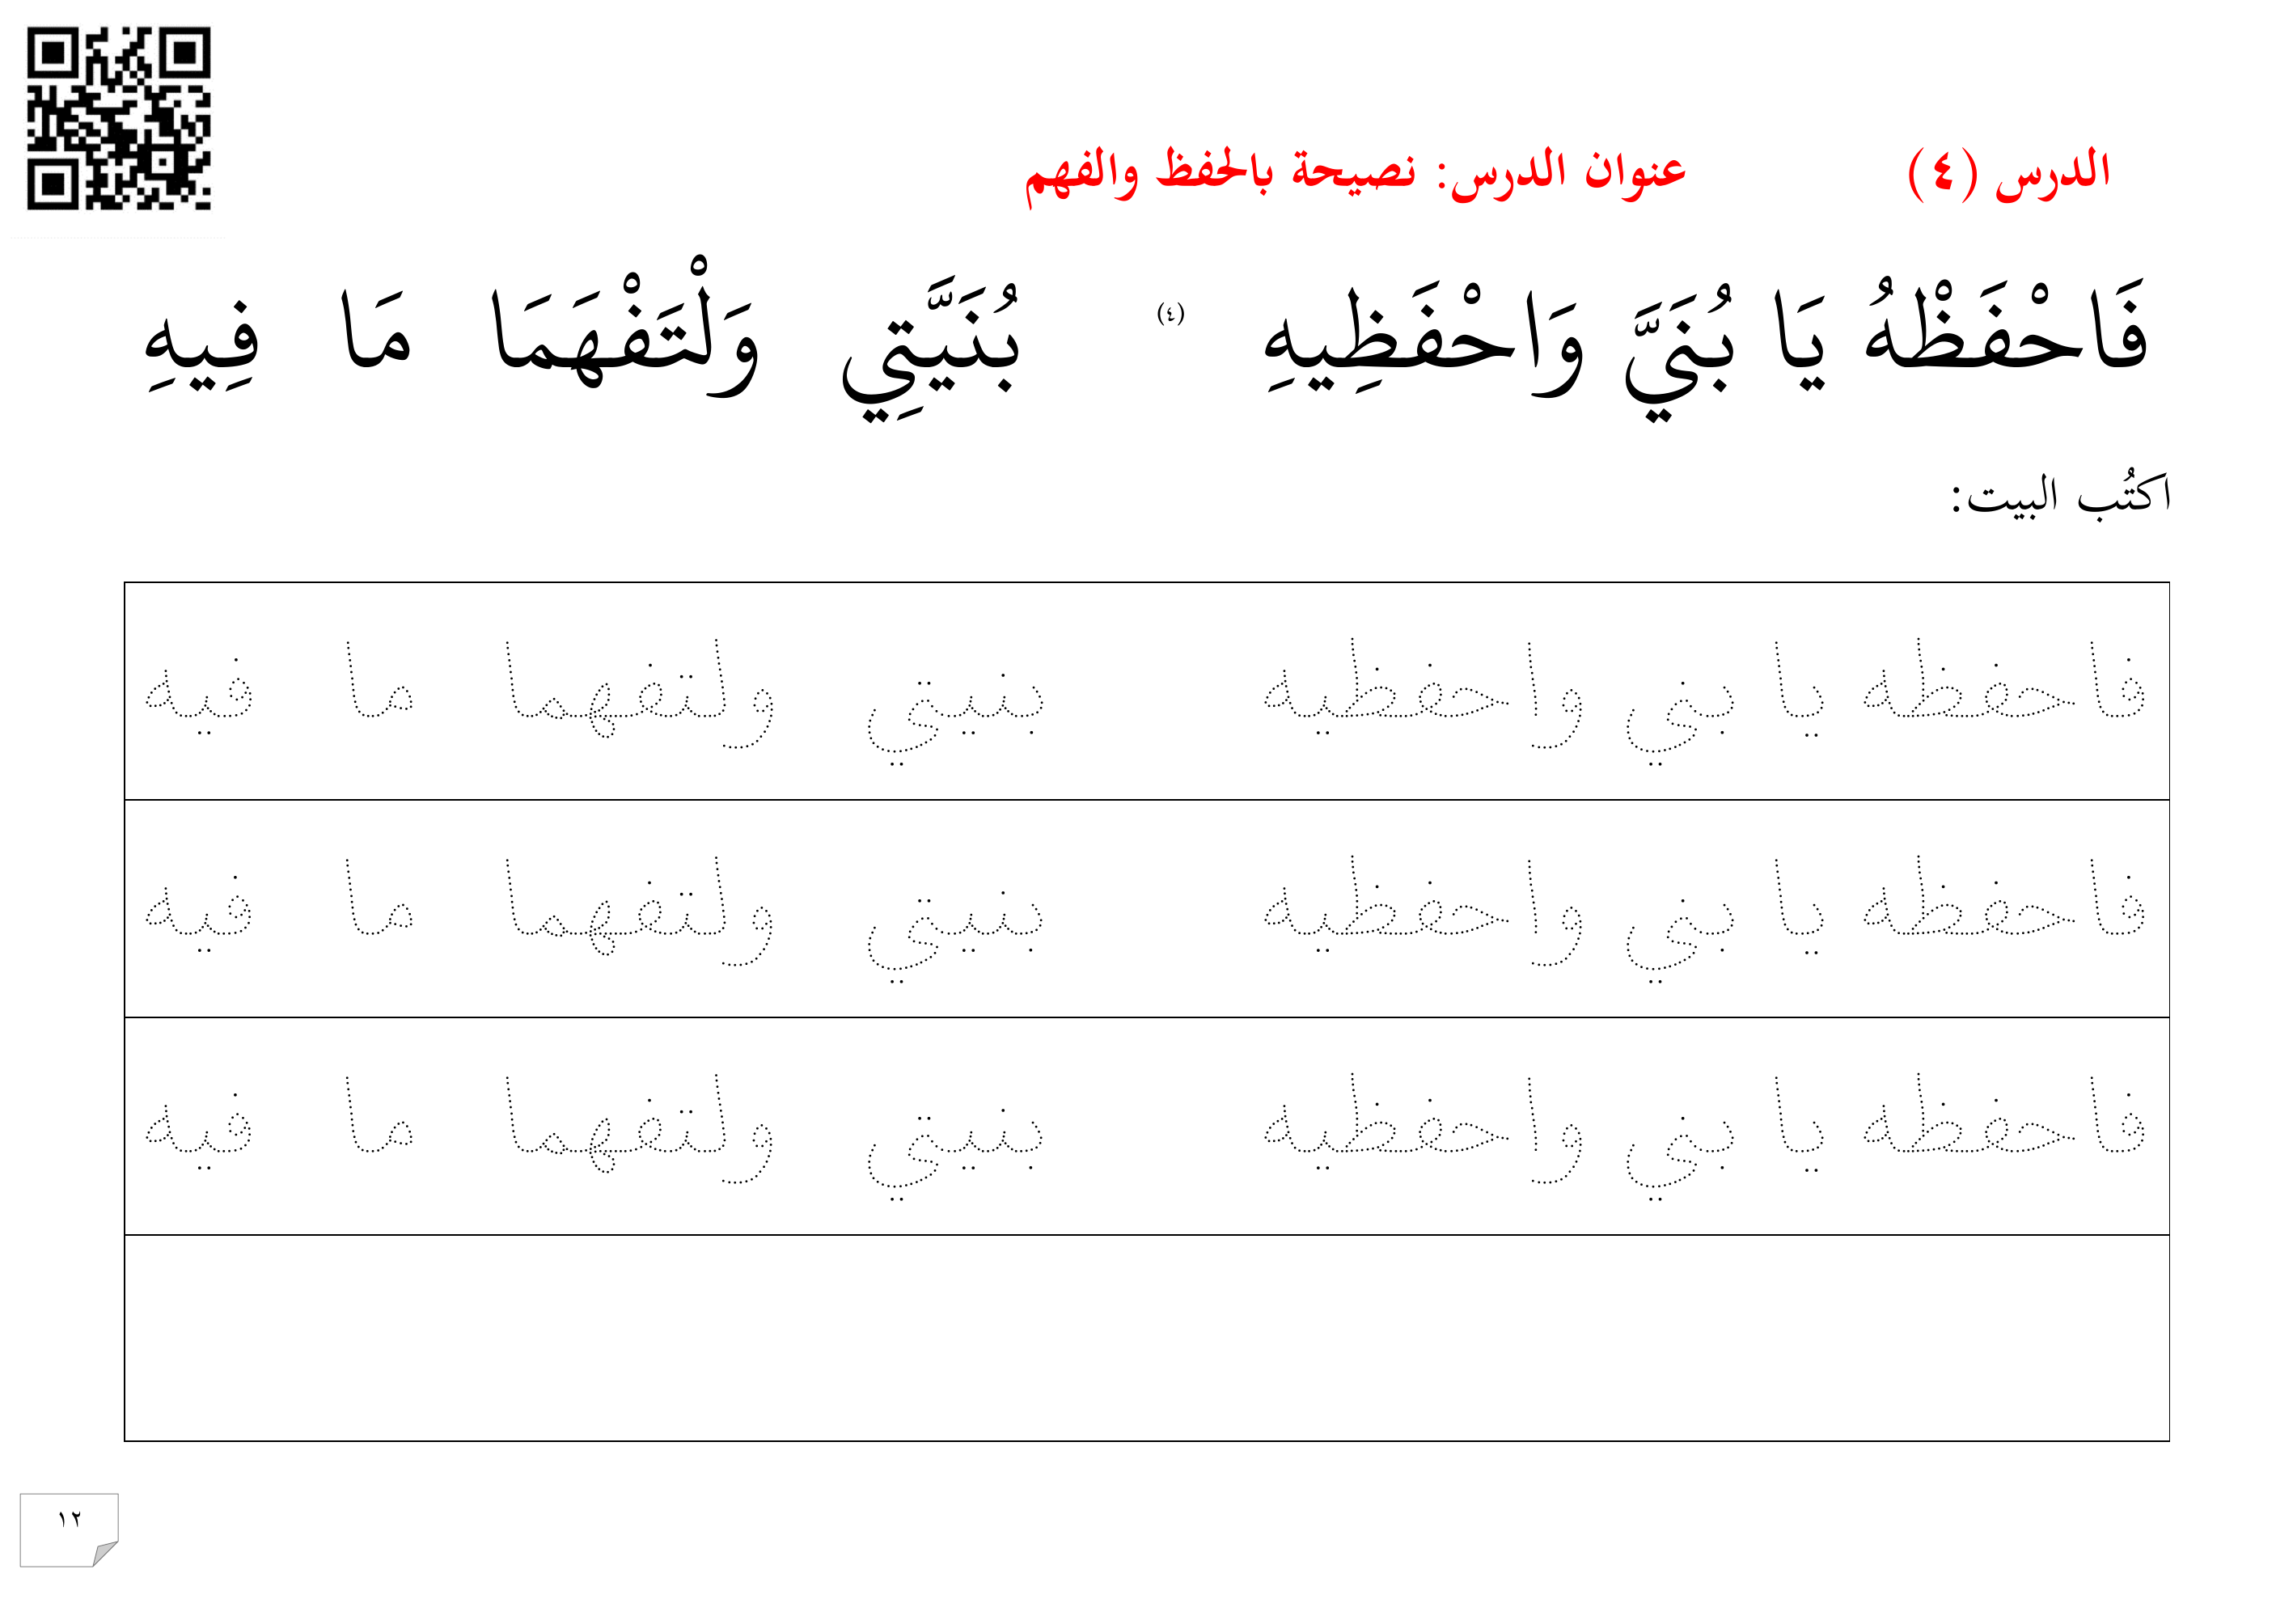 الدرس (٤) عنوان الدرس: نصيحة بالحفظ والفهم
فَاحْفَظْهُ يَا بُنَيَّ وَاحْفَظِيهِ (٤) بُنَيَّتِي وَلْتَفْهَمَا مَا فِيهِ
اكتُب البيت:
فاحفظه يا بني واحفظيه بنيتي ولتفهما ما فيه
فاحفظه يا بني واحفظيه بنيتي ولتفهما ما فيه
فاحفظه يا بني واحفظيه بنيتي ولتفهما ما فيه
١٢